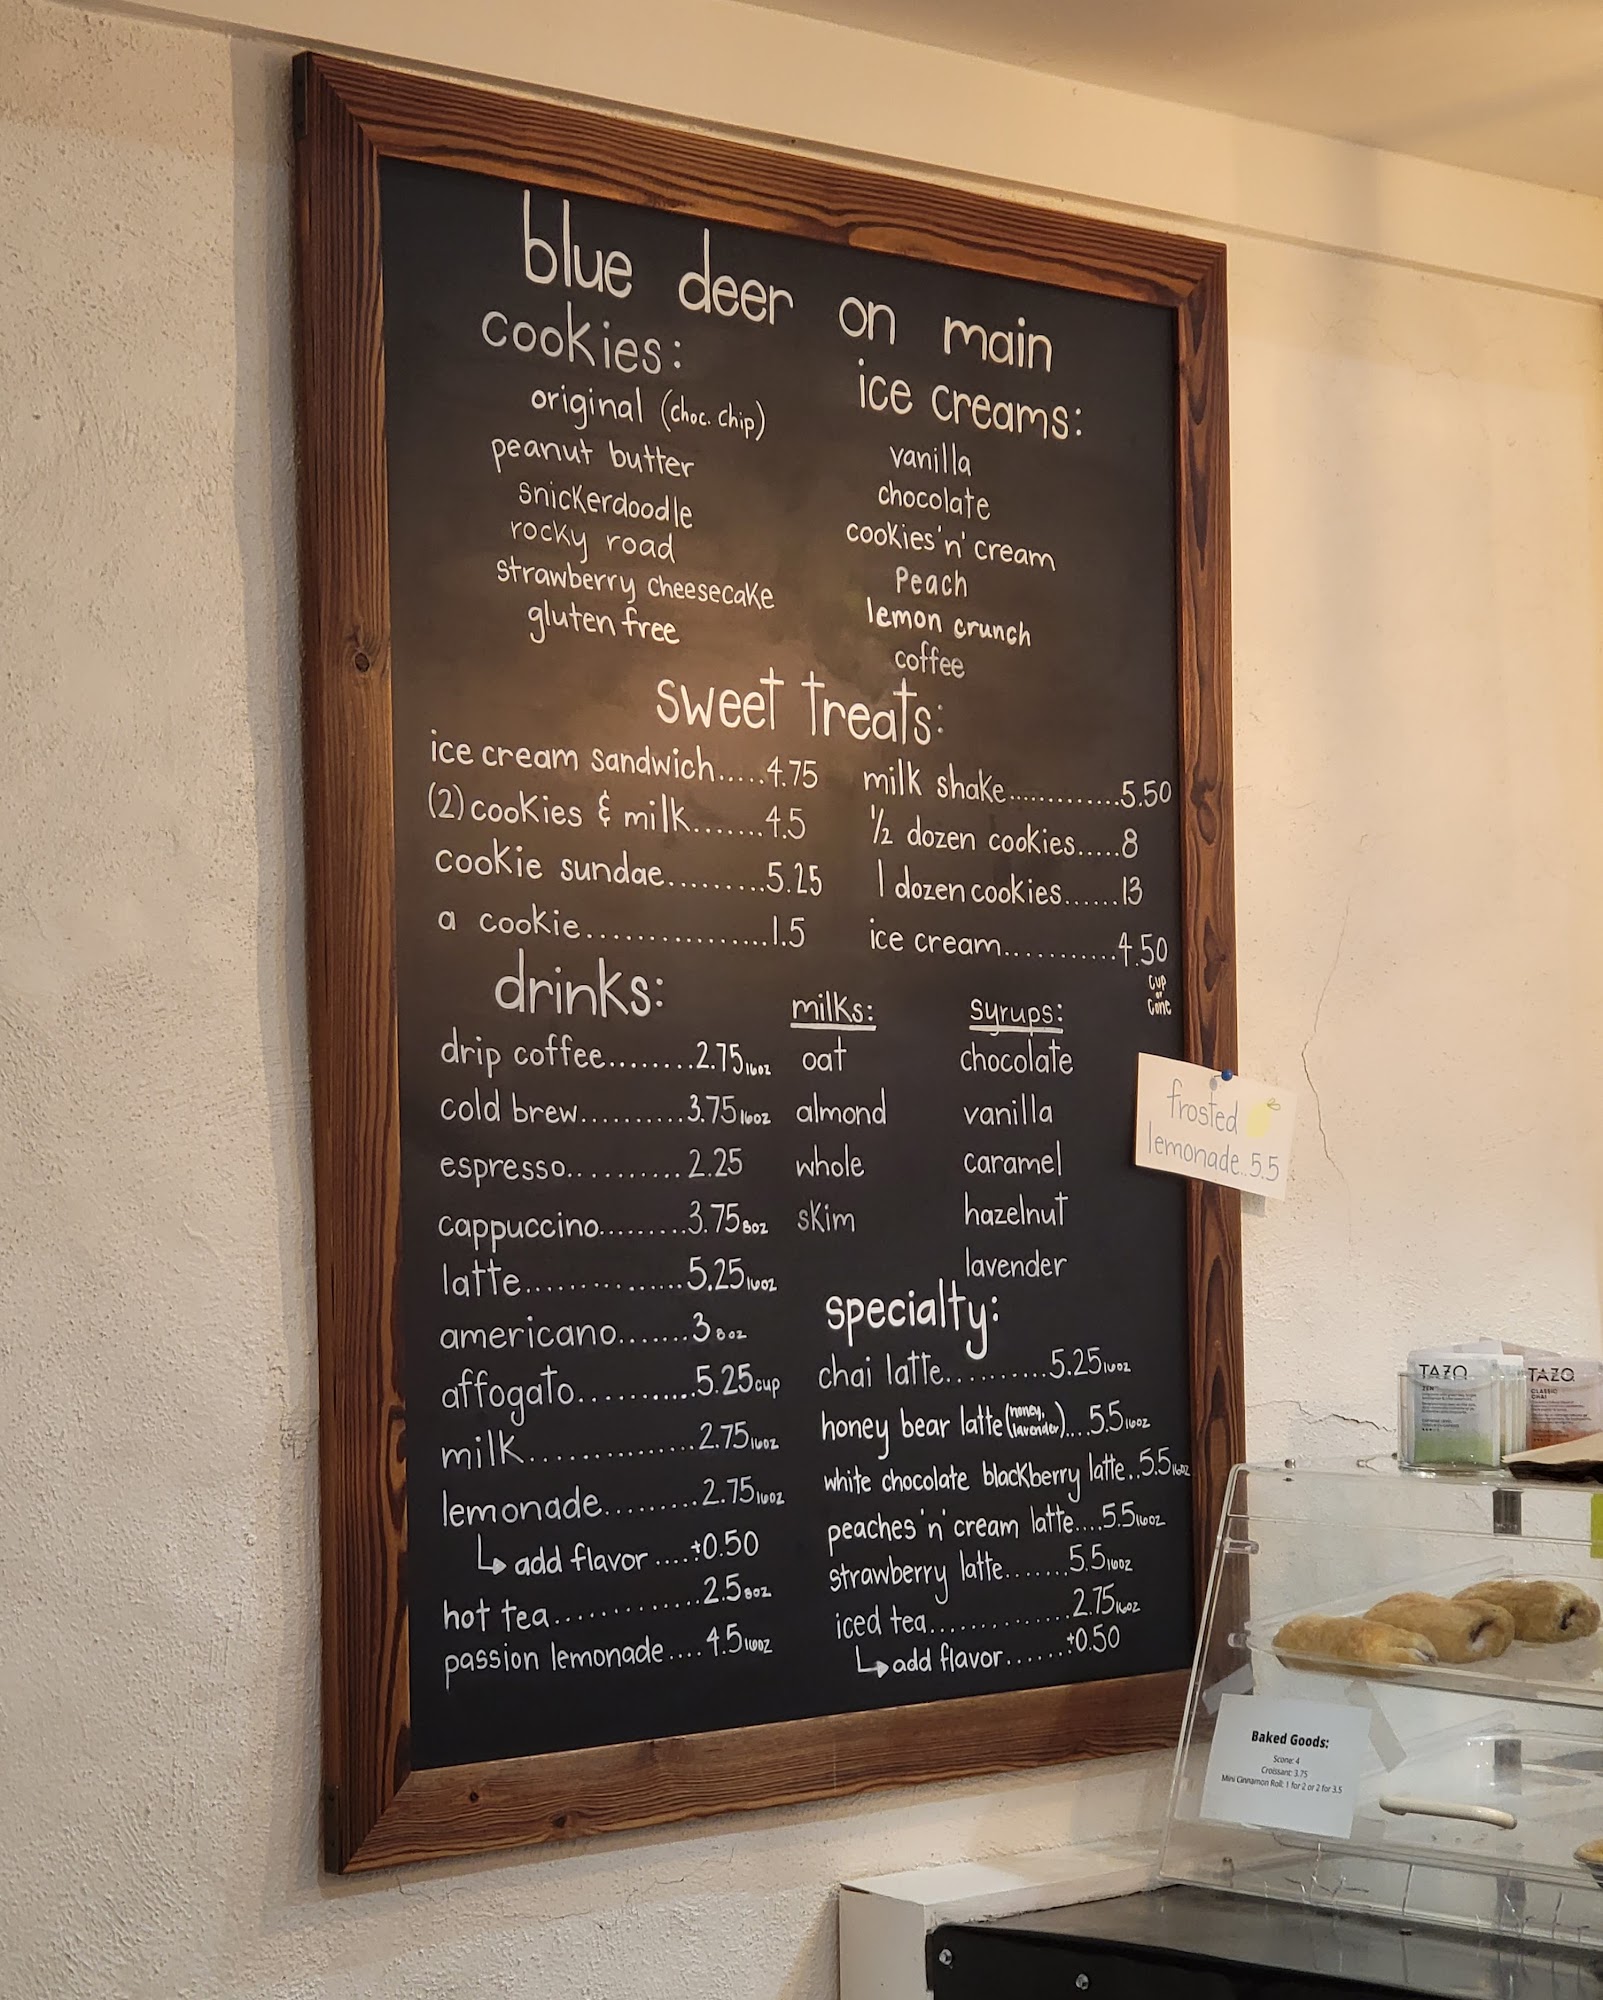 blue deer on main
cookies:
original (choc. chip)
peanut butter
snickerdoodle
rocky road
strawberry cheesecake
gluten free
ice creams:
vanilla
chocolate
cookies 'n' cream
Peach
lemon crunch
coffee
sweet treats:
ice cream sandwich.....4.75
(2) cookies & milk.......4.5
cookie sundae.........5.25
a cookie.................1.5
milk shake.............5.50
1/2 dozen cookies.....8
1 dozen cookies......13
ice cream...........4.50
cup
or
cone
drinks:
drip coffee........2.75 16oz
cold brew..........3.75 16oz
espresso..........2.25
cappuccino.........3.75 8oz
latte..............5.25 16oz
americano.......3 8oz
affogato...........5.25 cup
milk...............2.75 16oz
lemonade.........2.75 16oz
↳ add flavor....+0.50
hot tea.............2.5 8oz
passion lemonade....4.5 16oz
milks:
oat
almond
whole
skim
syrups:
chocolate
vanilla
caramel
hazelnut
lavender
specialty:
chai latte..........5.25 16oz
honey bear latte (honey, lavender)....5.5 16oz
white chocolate blackberry latte..5.5 16oz
peaches 'n' cream latte....5.5 16oz
strawberry latte.......5.5 16oz
iced tea............2.75 16oz
↳ add flavor......+0.50
frosted
lemonade..5.5
TAZO
ZEN
TAZO
CLASSIC
CHAI
Baked Goods:
Scone: 4
Croissant: 3.75
Mini Cinnamon Roll: 1 for 2 or 2 for 3.5